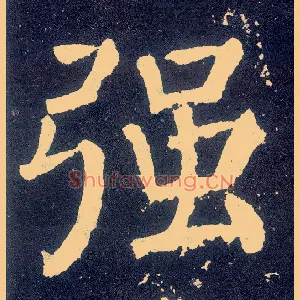 强
Shufawang.CN